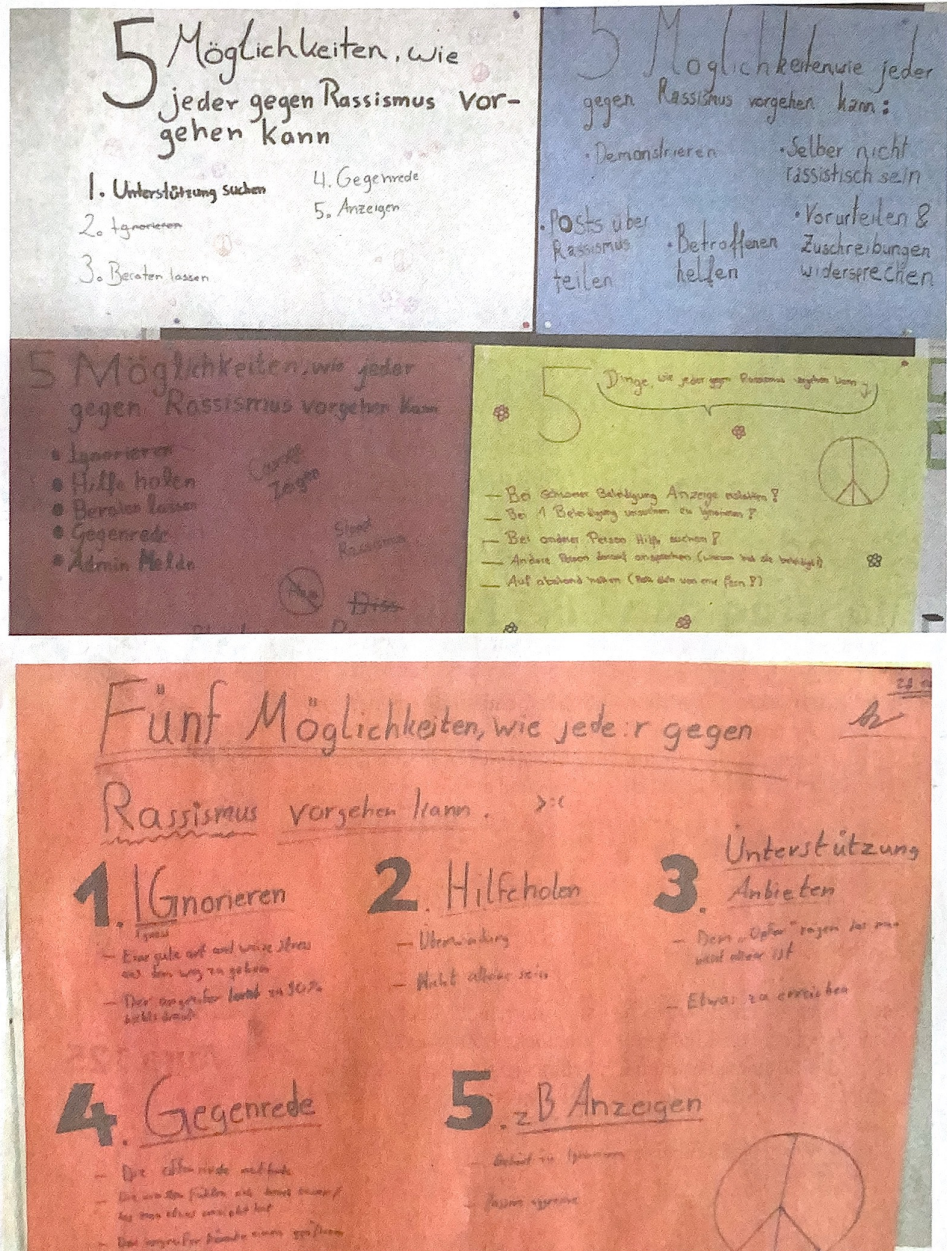 5 Möglichkeiten, wie
jeder gegen Rassismus vor-
gehen kann
1. Unterstützung suchen
2. Ignorieren
3. Beraten lassen
4. Gegenrede
5. Anzeigen
5 Möglichkeiten wie jeder
gegen Rassismus vorgehen kann:
· Demonstrieren
· Selber nicht
rassistisch sein
· Posts über
Rassismus
teilen
· Betroffenen
helfen
· Vorurteilen &
Zuschreibungen
widersprechen
5 Möglichkeiten, wie jeder
gegen Rassismus vorgehen kann
• Ignorieren
• Hilfe holen
• Beraten lassen
• Gegenrede
• Admin Melde
Courage
Zeigen
Rassismus
Diss
5 Dinge, wie jeder gegen Rassismus vorgehen kann
— Bei schlimmer Beleidigung Anzeige erstatten!
— Bei 1 Beleidigung versuchen zu ignorieren!
— Bei anderer Person Hilfe suchen!
— Andere Person darauf ansprechen
— Auf abstand halten
Fünf Möglichkeiten, wie jede:r gegen
Rassismus vorgehen kann. >:(
1. IGnorieren
– Eine gute art und weise stress
aus dem weg zu gehen
– Der angreifer zu 90%
2. Hilfeholen
– Überwindung
– Nicht alleine sein
3. Unterstützung
Anbieten
– Dem "Opfer" zeigen das man
nicht alleine ist
– Etwas zu erreichen
4. Gegenrede
– Die
5. zB Anzeigen